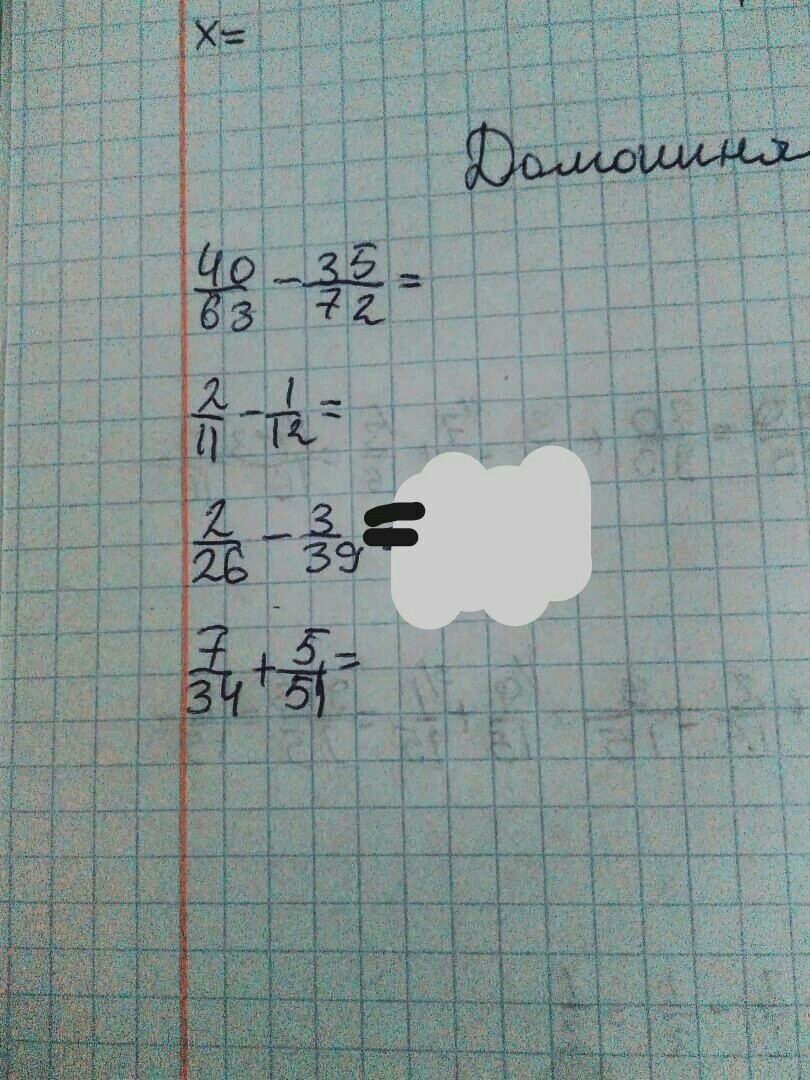 x=
Домошиня
40/63 - 35/72 =
2/11 - 1/12 =
2/26 - 3/39 =
7/34 + 5/51 =